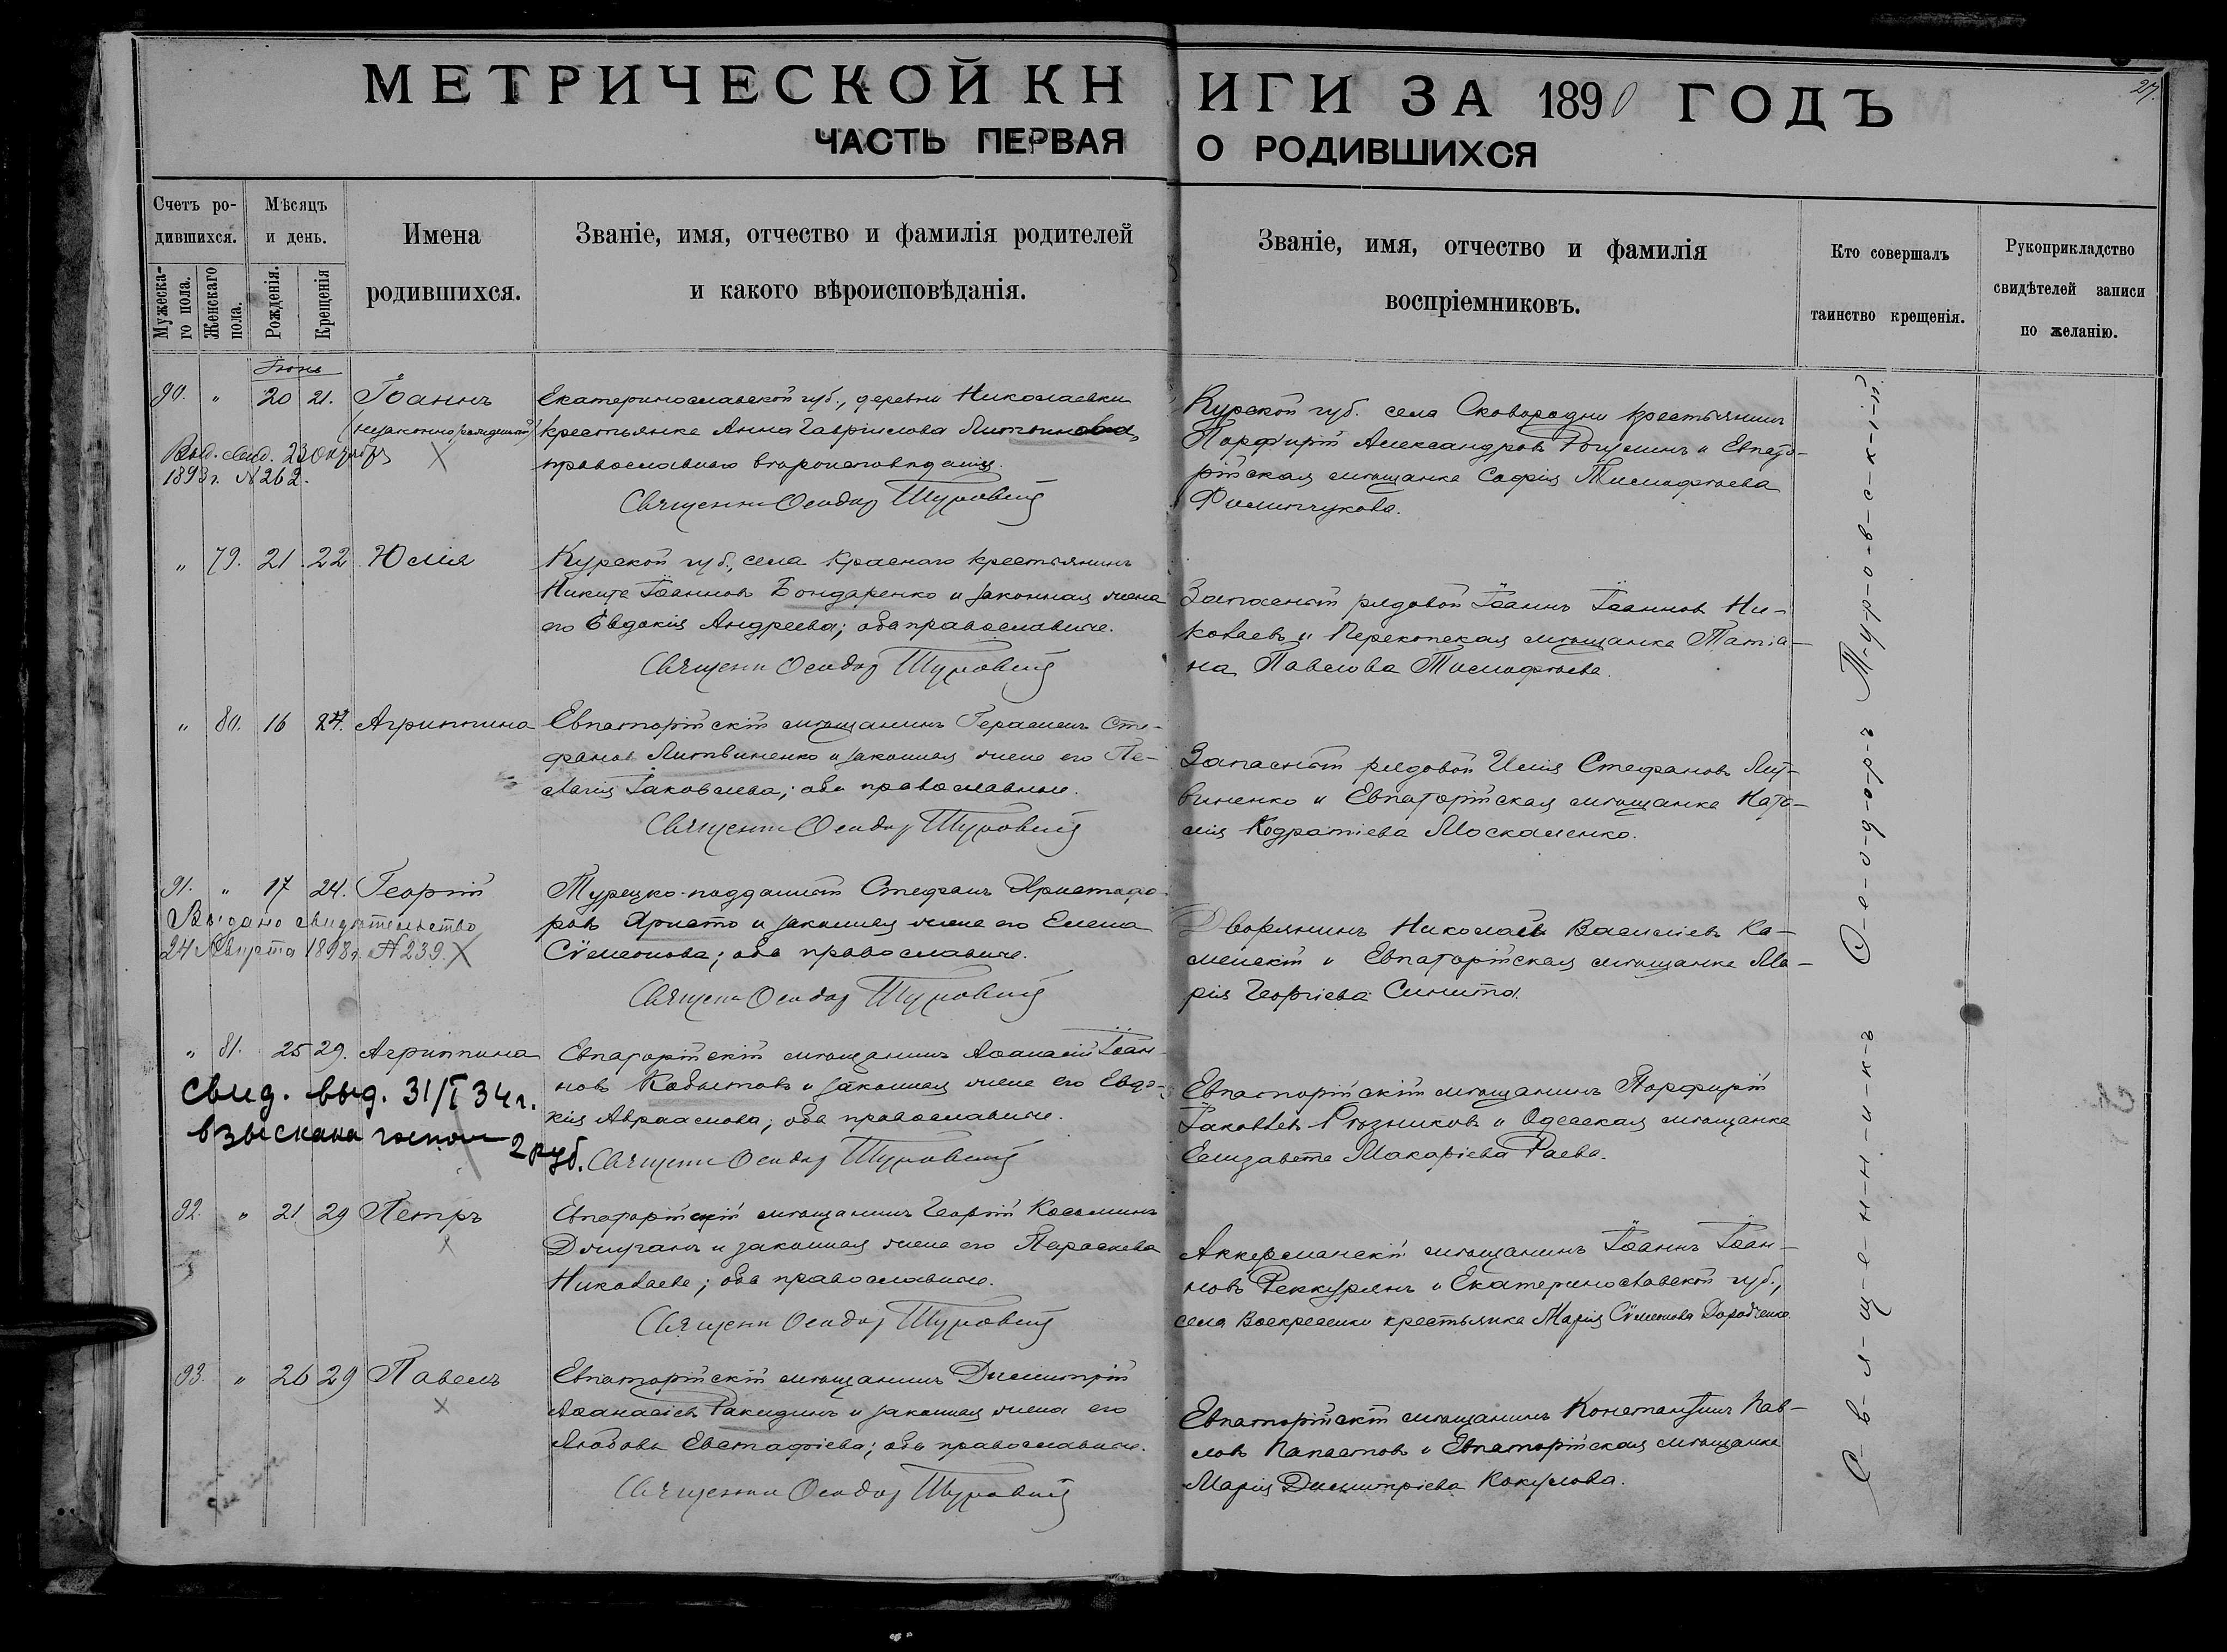 27.
МЕТРИЧЕСКОЙ КНИГИ ЗА 1890 ГОДЪ
ЧАСТЬ ПЕРВАЯ О РОДИВШИХСЯ
Счетъ ро-
дившихся.
Мужеска-
го пола.
Женскаго
пола.
Мѣсяцъ
и день.
Рожденія.
Крещенія
Имена
родившихся.
Званіе, имя, отчество и фамилія родителей
и какого вѣроисповѣданія.
Званіе, имя, отчество и фамилія
воспріемниковъ.
Кто совершалъ
таинство крещенія.
Рукоприкладство
свидѣтелей записи
по желанію.
Іюнь
90. " 20 21. Іоаннъ
(незаконнорожденный)
Выд. свид. 23 октября
1893 г. № 262.
Екатеринославской губ., деревни Николаевки
крестьянка Анна Гавріилова Литвинова,
православнаго вѣроисповѣданія.
Священ Ѳеодоръ Туровскій
Курской губ. села Сковородни крестьянинъ
Порфирій Александровъ и Евпато-
рійская мѣщанка Софія Тимофѣева
Филипчукова.
" 79. 21 22 Юлія
Курской губ., села Краснаго крестьянинъ
Никита Іоанновъ Бондаренко и законная жена
его Евдокія Андреева; оба православные.
Священ Ѳеодоръ Туровскій
Запасный рядовой Іоаннъ Іоанновъ Ни-
колаевъ и Перекопская мѣщанка Татіа-
на Павлова Тимофѣева.
" 80. 16 24. Агриппина
Евпаторійскій мѣщанинъ Герасимъ Сте-
фановъ Литвиненко и законная жена его Пе-
лагія Іаковлева; оба православные.
Священ Ѳеодоръ Туровскій
Запасный рядовой Илія Стефановъ Лит-
виненко и Евпаторійская мѣщанка Ната-
лія Кодратіева Москаленко.
91. " 17 24. Георгій
Выдано свидѣтельство
24 Августа 1898 г. № 239.
Турецко-подданный Стефанъ Христофо-
ровъ Христо и законная жена его Елена
Сѵмеонова; оба православные.
Священ Ѳеодоръ Туровскій
Дворянинъ Николай Василіевъ Ка-
менскій и Евпаторійская мѣщанка Ма-
рія Георгіева
" 81. 25 29. Агриппина
Свид. выд. 31/I 34 г.
взыскана 2 руб.
Евпаторійскій мѣщанинъ Аѳанасій Іоан-
новъ и законная жена его Евдо-
кія Авраамова; оба православные.
Священ Ѳеодоръ Туровскій
Евпаторійскій мѣщанинъ Порфирій
Іаковлевъ Рѣзниковъ и Одесская мѣщанка
Елизавета Макаріева Раева.
92. " 21 29 Петръ
Евпаторійскій мѣщанинъ Георгій Косминъ
и законная жена его Параскева
Николаева; оба православные.
Священ Ѳеодоръ Туровскій
Аккерманскій мѣщанинъ Іоаннъ Іоан-
новъ и Екатеринославской губ.,
села Воскресенки крестьянка Марія Сѵмеонова
93. " 26 29 Павелъ
Евпаторійскій мѣщанинъ Димитрій
Аѳанасіевъ Ракидинъ и законная жена его
Любовь Евстафіева; оба православные.
Священ Ѳеодоръ Туровскій
Евпаторійскій мѣщанинъ Константинъ Пав-
ловъ и Евпаторійская мѣщанка
Марія Димитріева Кокулова.
С-в-я-щ-е-н-н-и-к-ъ Ѳ-е-о-д-о-р-ъ Т-у-р-о-в-с-к-і-й.